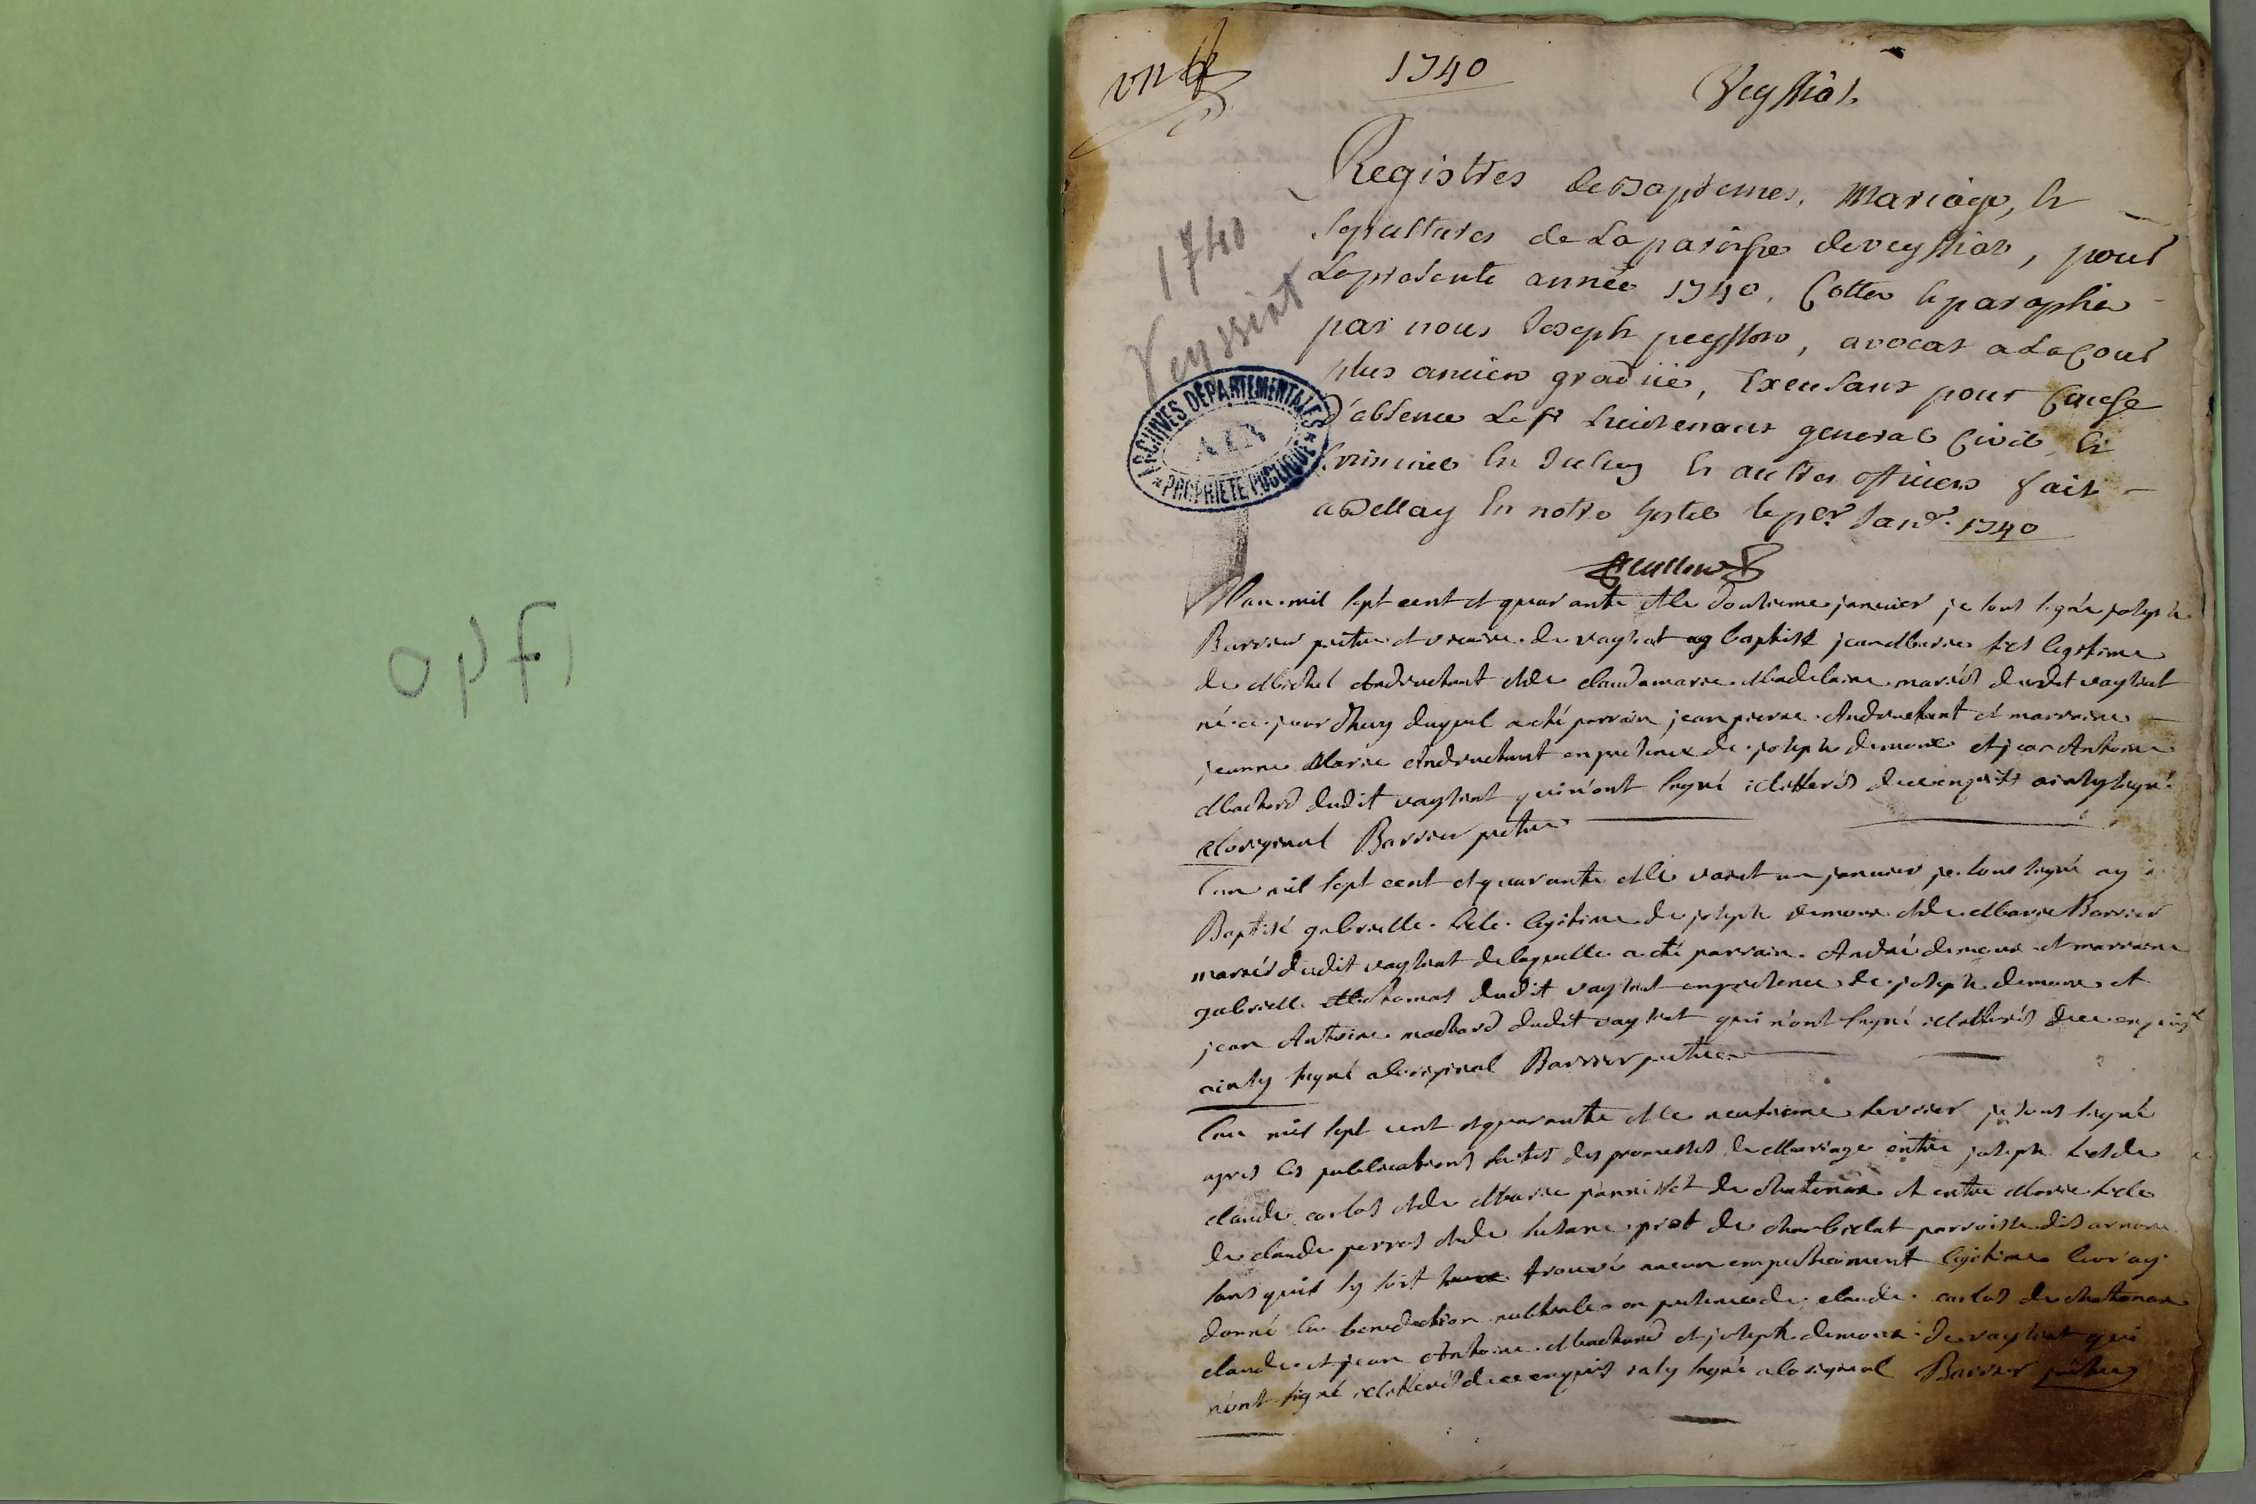 opf
1740
Veyssiat
Registres de Baptemes, Mariage, et
sepultures de la paroisse de veyssiat, pour
la presente année 1740, Cottée et paraphée
par nous Joseph peysson, avocat a la Cour
plus ancien gradué, Exerçant pour Cause
d'absence de Mr lieutenant general Civil et
Criminel En Bugey et autres officiers fait
a Bellay En notre hostel le per Janer 1740
1740
Veyssiat
ARCHIVES DÉPARTEMENTALES
AIN
PROPRIÉTÉ PUBLIQUE
L'an mil sept cent et quarante et le douzieme janvier je sous signé joseph
Barrier pretre et vicaire de vaysiat ay baptisé jean Marie fils legitime
de Michel Andruchant et de claudamarie Madelaine mariés dudit vaysiat
né ce jourdhuy duquel a été parrain jean pierre Andruchant et marraine
jeanne Marie Andruchant en presence de joseph demoux et jean Antoine
Machard dudit vaysiat qui n'ont signé illitterés de ce enquis ainsy signé
a l'original Barrier pretre
L'an mil sept cent et quarante et le vaint un janvier je sous signé ay
Baptisé gabrielle fille legitime de joseph demoux et de Marie Barrier
mariés dudit vaysiat de laquelle a été parrain André demoux et marraine
gabrielle thomas dudit vaysiat en presence de joseph demoux et
jean Antoine machard dudit vaysiat qui n'ont signé illitterés de ce enquis
ainsy signé a l'original Barrier pretre
L'an mil sept cent et quarante et le neufieme fevrier je sous signé
apres les publications faites des promesses de Mariage entre joseph fils de
claude carlos et de Marie pannisset de chatonax et entre Marie fille
de claude perret et de susane prost de charbillat parroisse disarnore
sans quil sy soit trouvé aucun empechement legitime leur ay
donné la benediction nuptiale en presence de claude carlos de chatonax
claude et jean Antoine Machard et joseph demoux de vaysiat qui
n'ont signé illitterés de ce enquis insy signé a l'original Barrier pretre